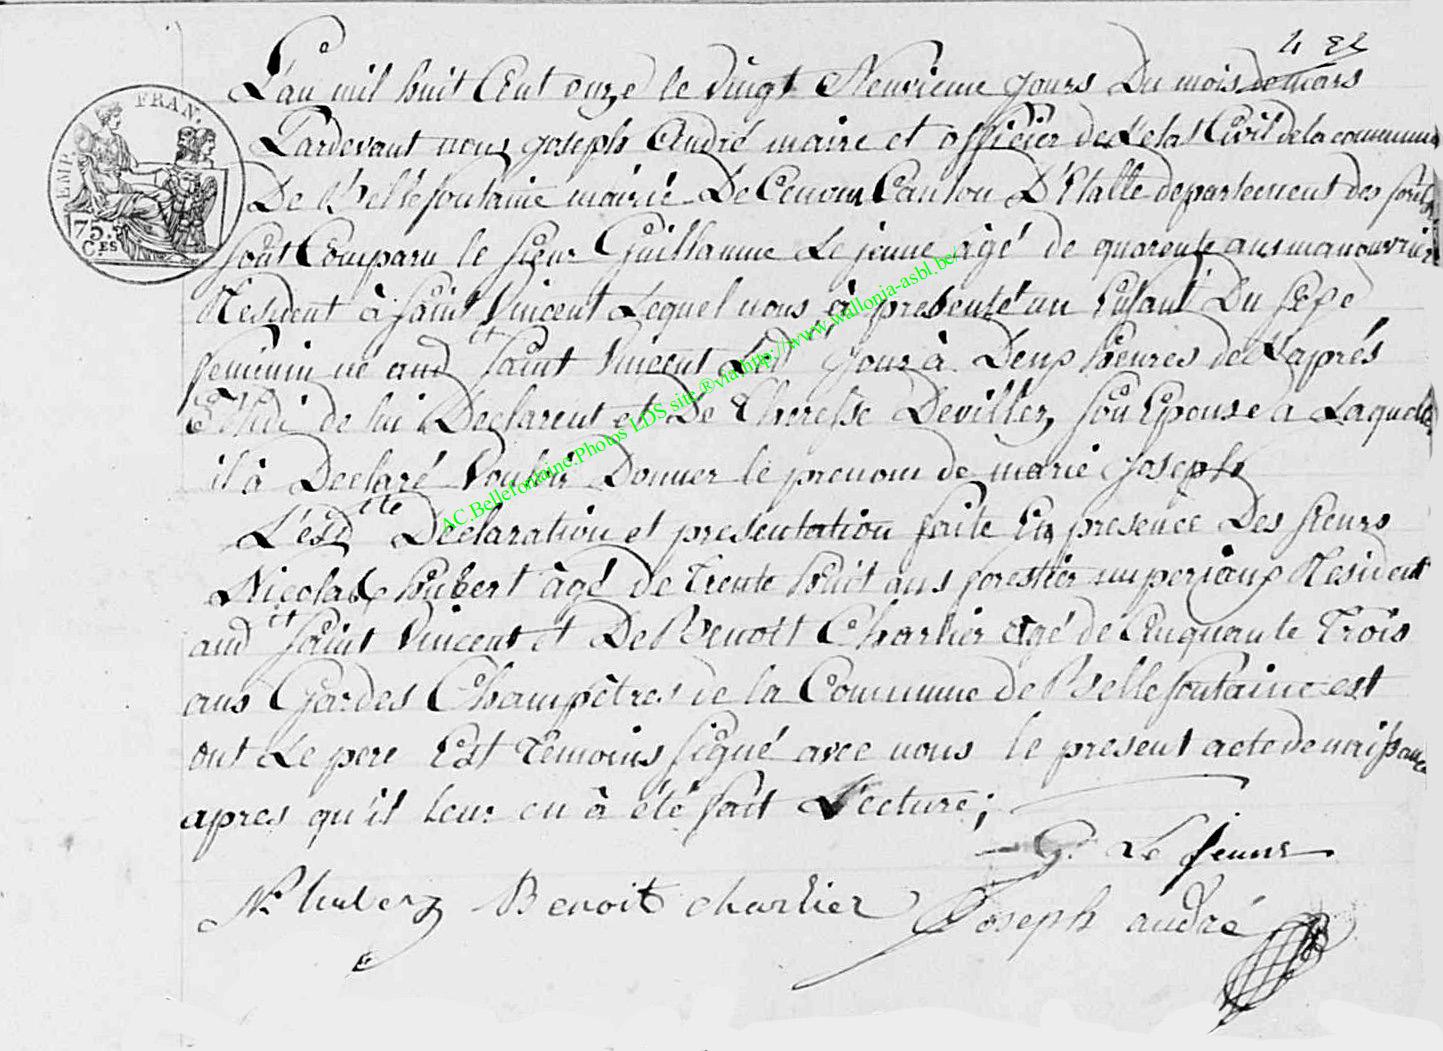 L'an mil huit Cent onze le vingt Neuvieme jours Du mois de mars
Pardevant nous joseph André maire et officier de L'etat Civil de la commune
De Bellefontaine mairie De Canton D'Etalle departement des forêts
sont Comparu le sieur Guillaume Le jeune âgé de quarente ans manouvrier
Resident à saint Vincent Lequel nous à presenté un Enfant Du sexe
feminin né aud it saint Vincent Led it jour à Deux heures de L'aprés
Midi de lui Declarent et De Theresse Devillez son Epouse a Laquelle
il à Declaré Vouloir Donner le prenom de marie joseph
L'esd tte Declaration et presentation faite En presence Des sieurs
Nicolas hubert âgé de Trente huit ans forestier imperiaux Resident
aud it saint Vincent et De Benoit Charlier agé de Cinquante Trois
ans Gardes Champêtres de la Commune de Bellefontaine est
ont Le pere Est Temoins signé avec nous le present acte de naissance
apres qu'il leur en à été fait Lecture;
G. Le jeune
N. huberz Benoit charlier Joseph andré
EMP. FRAN.
75. CES
AC.Bellefontaine.Photos LDS site ®via http://www.wallonia-asbl.be/